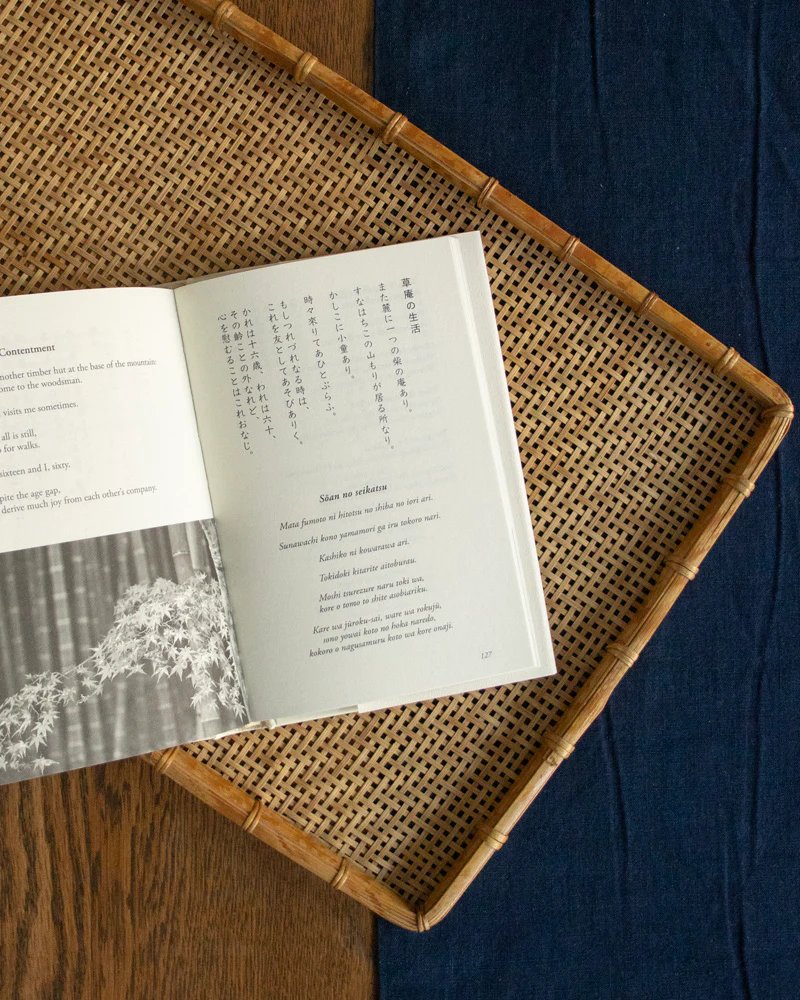 Contentment
nother timber hut at the base of the mountain:
ome to the woodsman.
visits me sometimes.
all is still,
for walks.
sixteen and I, sixty.
pite the age gap,
derive much joy from each other's company.
草庵の生活
また麓に一つの柴の庵あり。
すなはちこの山もりが居る所なり。
かしこに小童あり。
時々来りてあひとぶらふ。
もしつれづれなる時は、
これを友としてあそびありく。
かれは十六歳、われは六十、
その齢ことの外なれど、
心を慰むることはこれおなじ。
Sōan no seikatsu
Mata fumoto ni hitotsu no shiba no iori ari.
Sunawachi kono yamamori ga iru tokoro nari.
Kashiko ni kowarawa ari.
Tokidoki kitarite aitoburau.
Moshi tsurezure naru toki wa,
kore o tomo to shite asobiariku.
Kare wa jūroku-sai, ware wa rokujū,
sono yowai koto no hoka naredo,
kokoro o nagusamuru koto wa kore onaji.
127